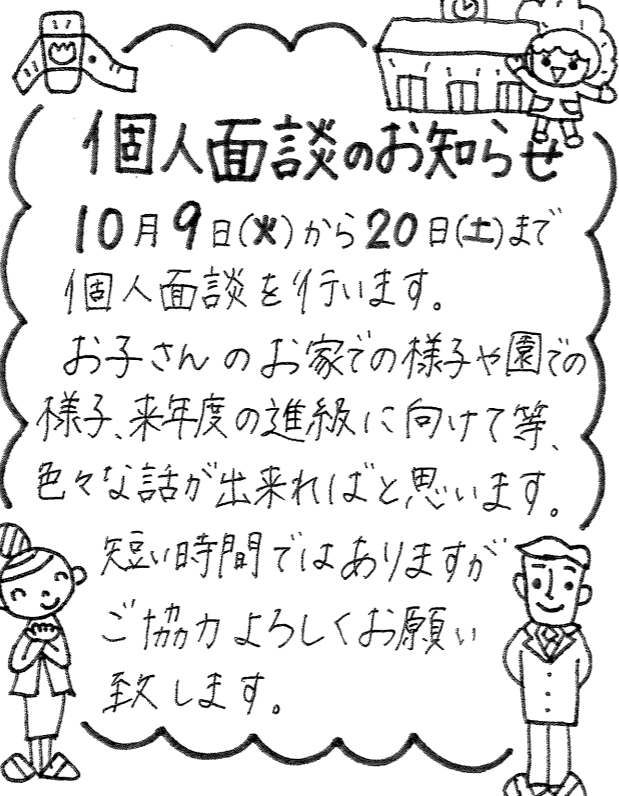 個人面談のお知らせ
10月9日(火)から20日(土)まで
個人面談を行います。
お子さんのお家での様子や園での
様子、来年度の進級に向けて等、
色々な話が出来ればと思います。
短い時間ではありますが
ご協力よろしくお願い
致します。